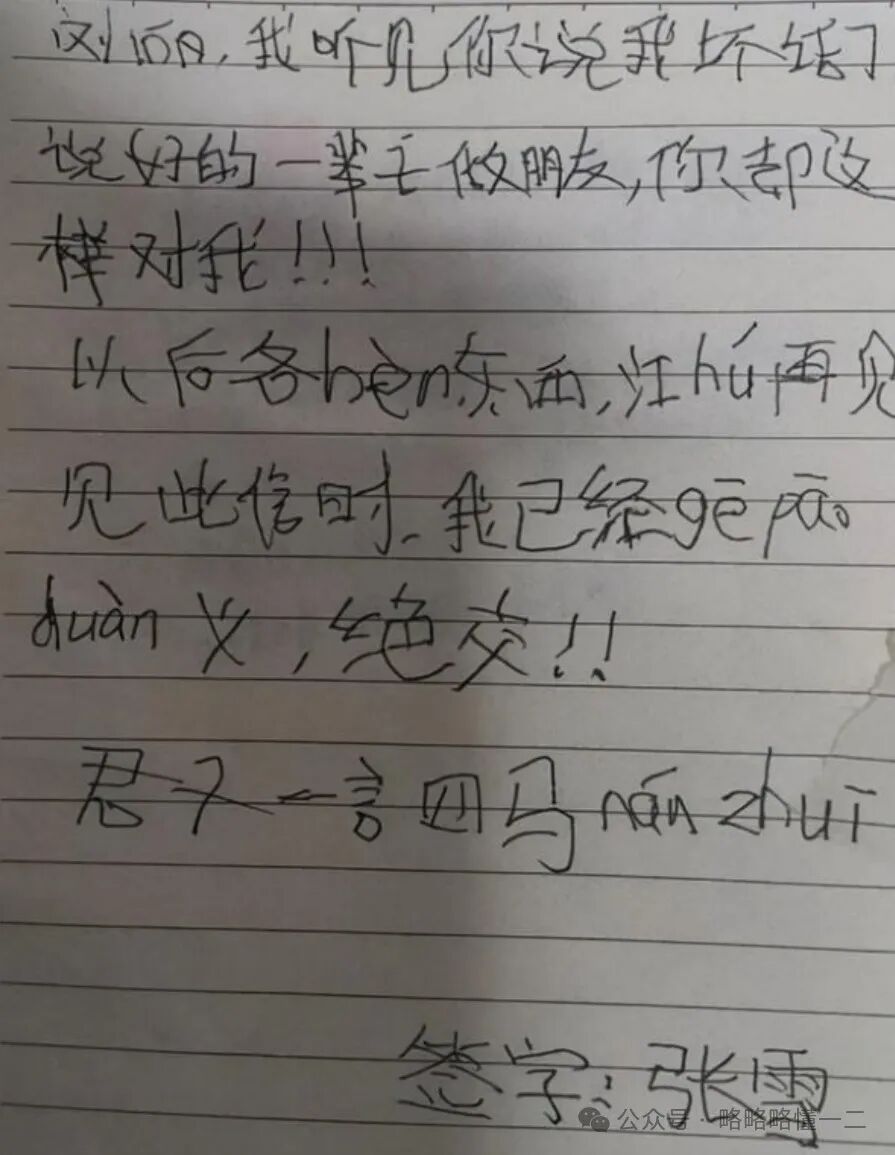 刘陌, 我听见你说我坏话了
说好的一辈子做朋友,你却这
样对我!!!
以后各bèn东西,江hú再见
见此信时.我已经gē pāo
duàn义,绝交!!
君子一言四马nán zhuī
签字:张雪
公众号·略略略懂一二